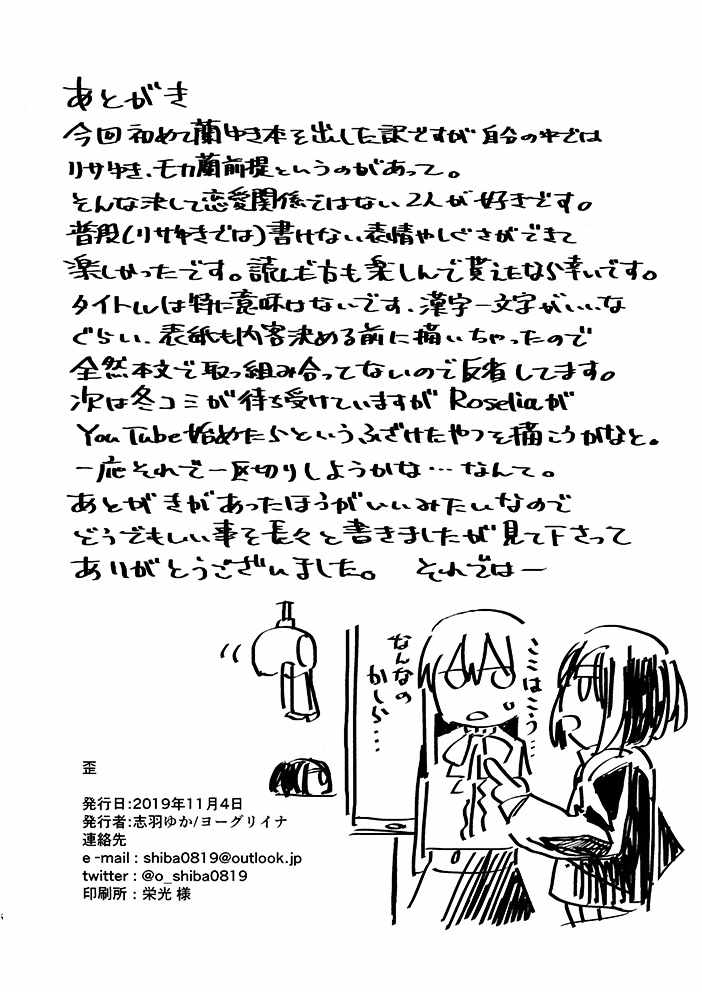 あとがき
今回初めて蘭ゆき本を出した訳ですが自分の中では
リサゆき、モカ蘭前提というのがあって。
そんな決して恋愛関係ではない2人が好きです。
普段(リサゆきでは)書けない表情やしぐさができて
楽しかったです。読んだ方も楽しんで貰えたなら幸いです。
タイトルは特に意味はないです、漢字一文字がいいな
ぐらい、表紙も内容決める前に描いちゃったので
全然本文で取っ組み合ってないので反省してます。
次は冬コミが待ち受けていますがRoseliaが
YouTube始めたらというふざけたやつを描こうかなと。
一応それで一区切りしようかな…なんて。
あとがきがあったほうがいいみたいなので
どうでもしい事を長々と書きましたが見て下さって
ありがとうございました。 それではー
ここはこう…
なんなの
かしら…
歪
発行日:2019年11月4日
発行者:志羽ゆか/ヨーグリイナ
連絡先
e-mail : shiba0819@outlook.jp
twitter : @o_shiba0819
印刷所 : 栄光 様